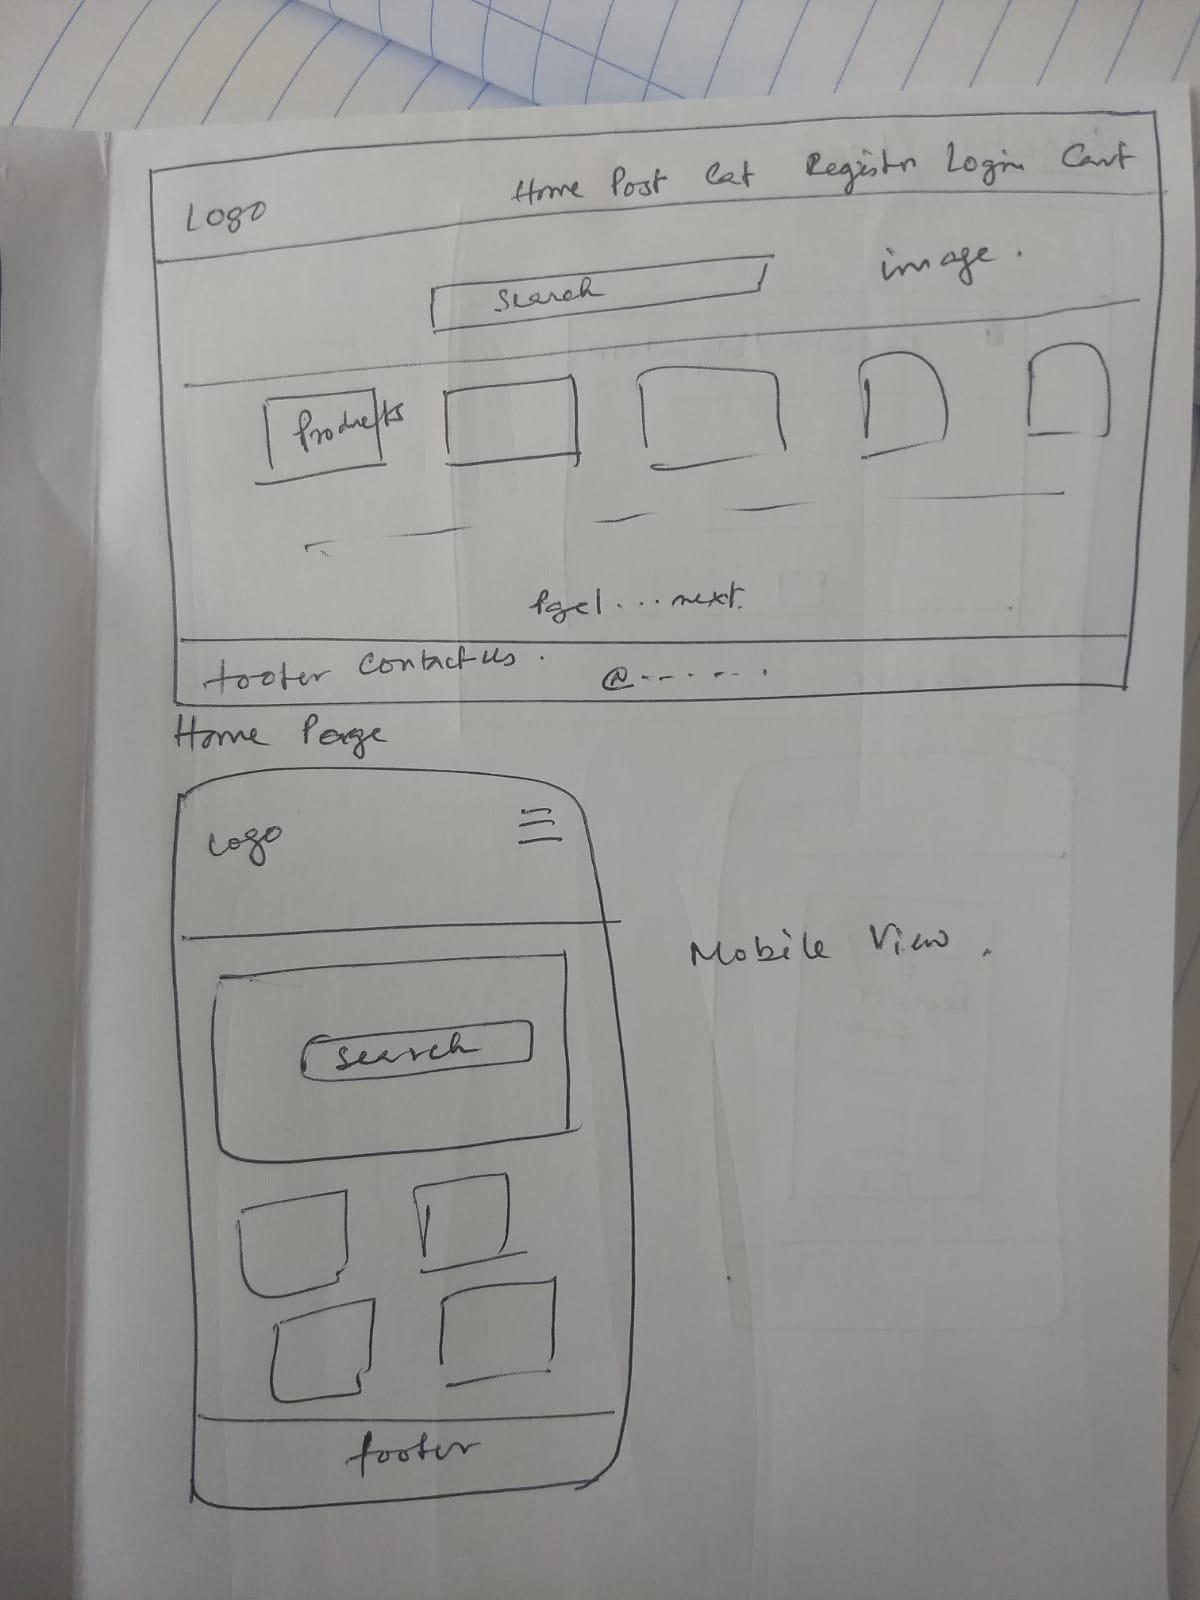 Logo Home Post Cat Register Login Cart
Search image.
Products
Page 1 ... next.
footer Contact us. @-------.
Home Page
Logo
Mobile View.
Search
footer